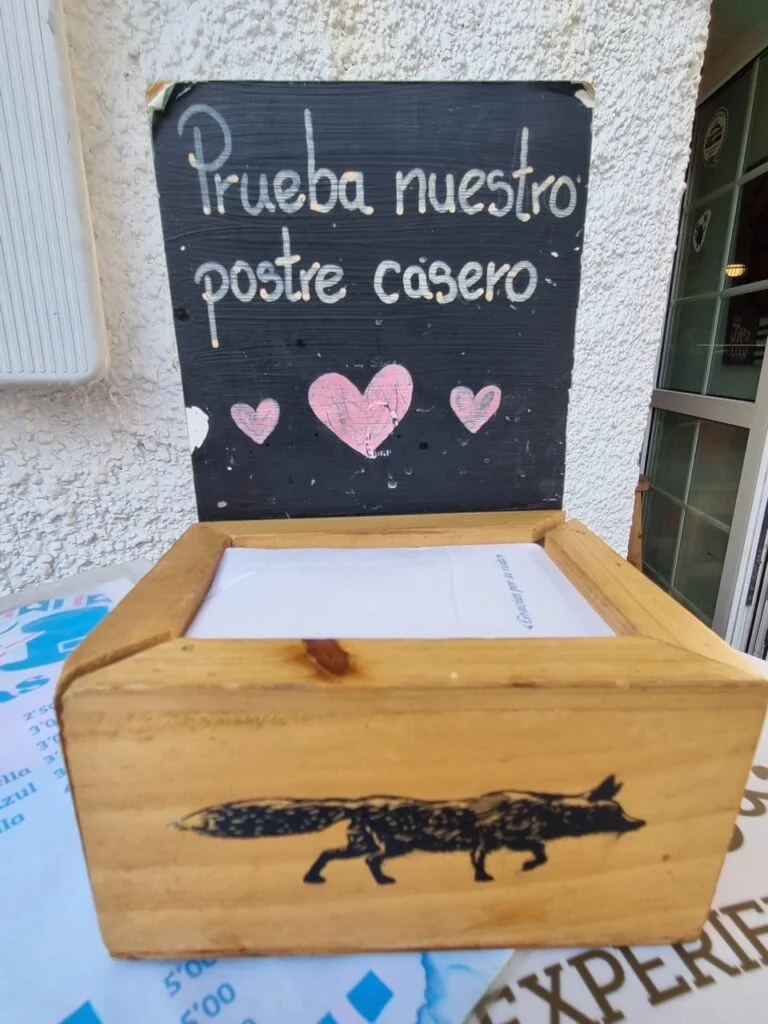 Prueba nuestro
postre casero
«Gracias por su visita»
as
2'50
3'0
3'0
3'
ella
Azul
lla
5'00
5'00
EXPERIE